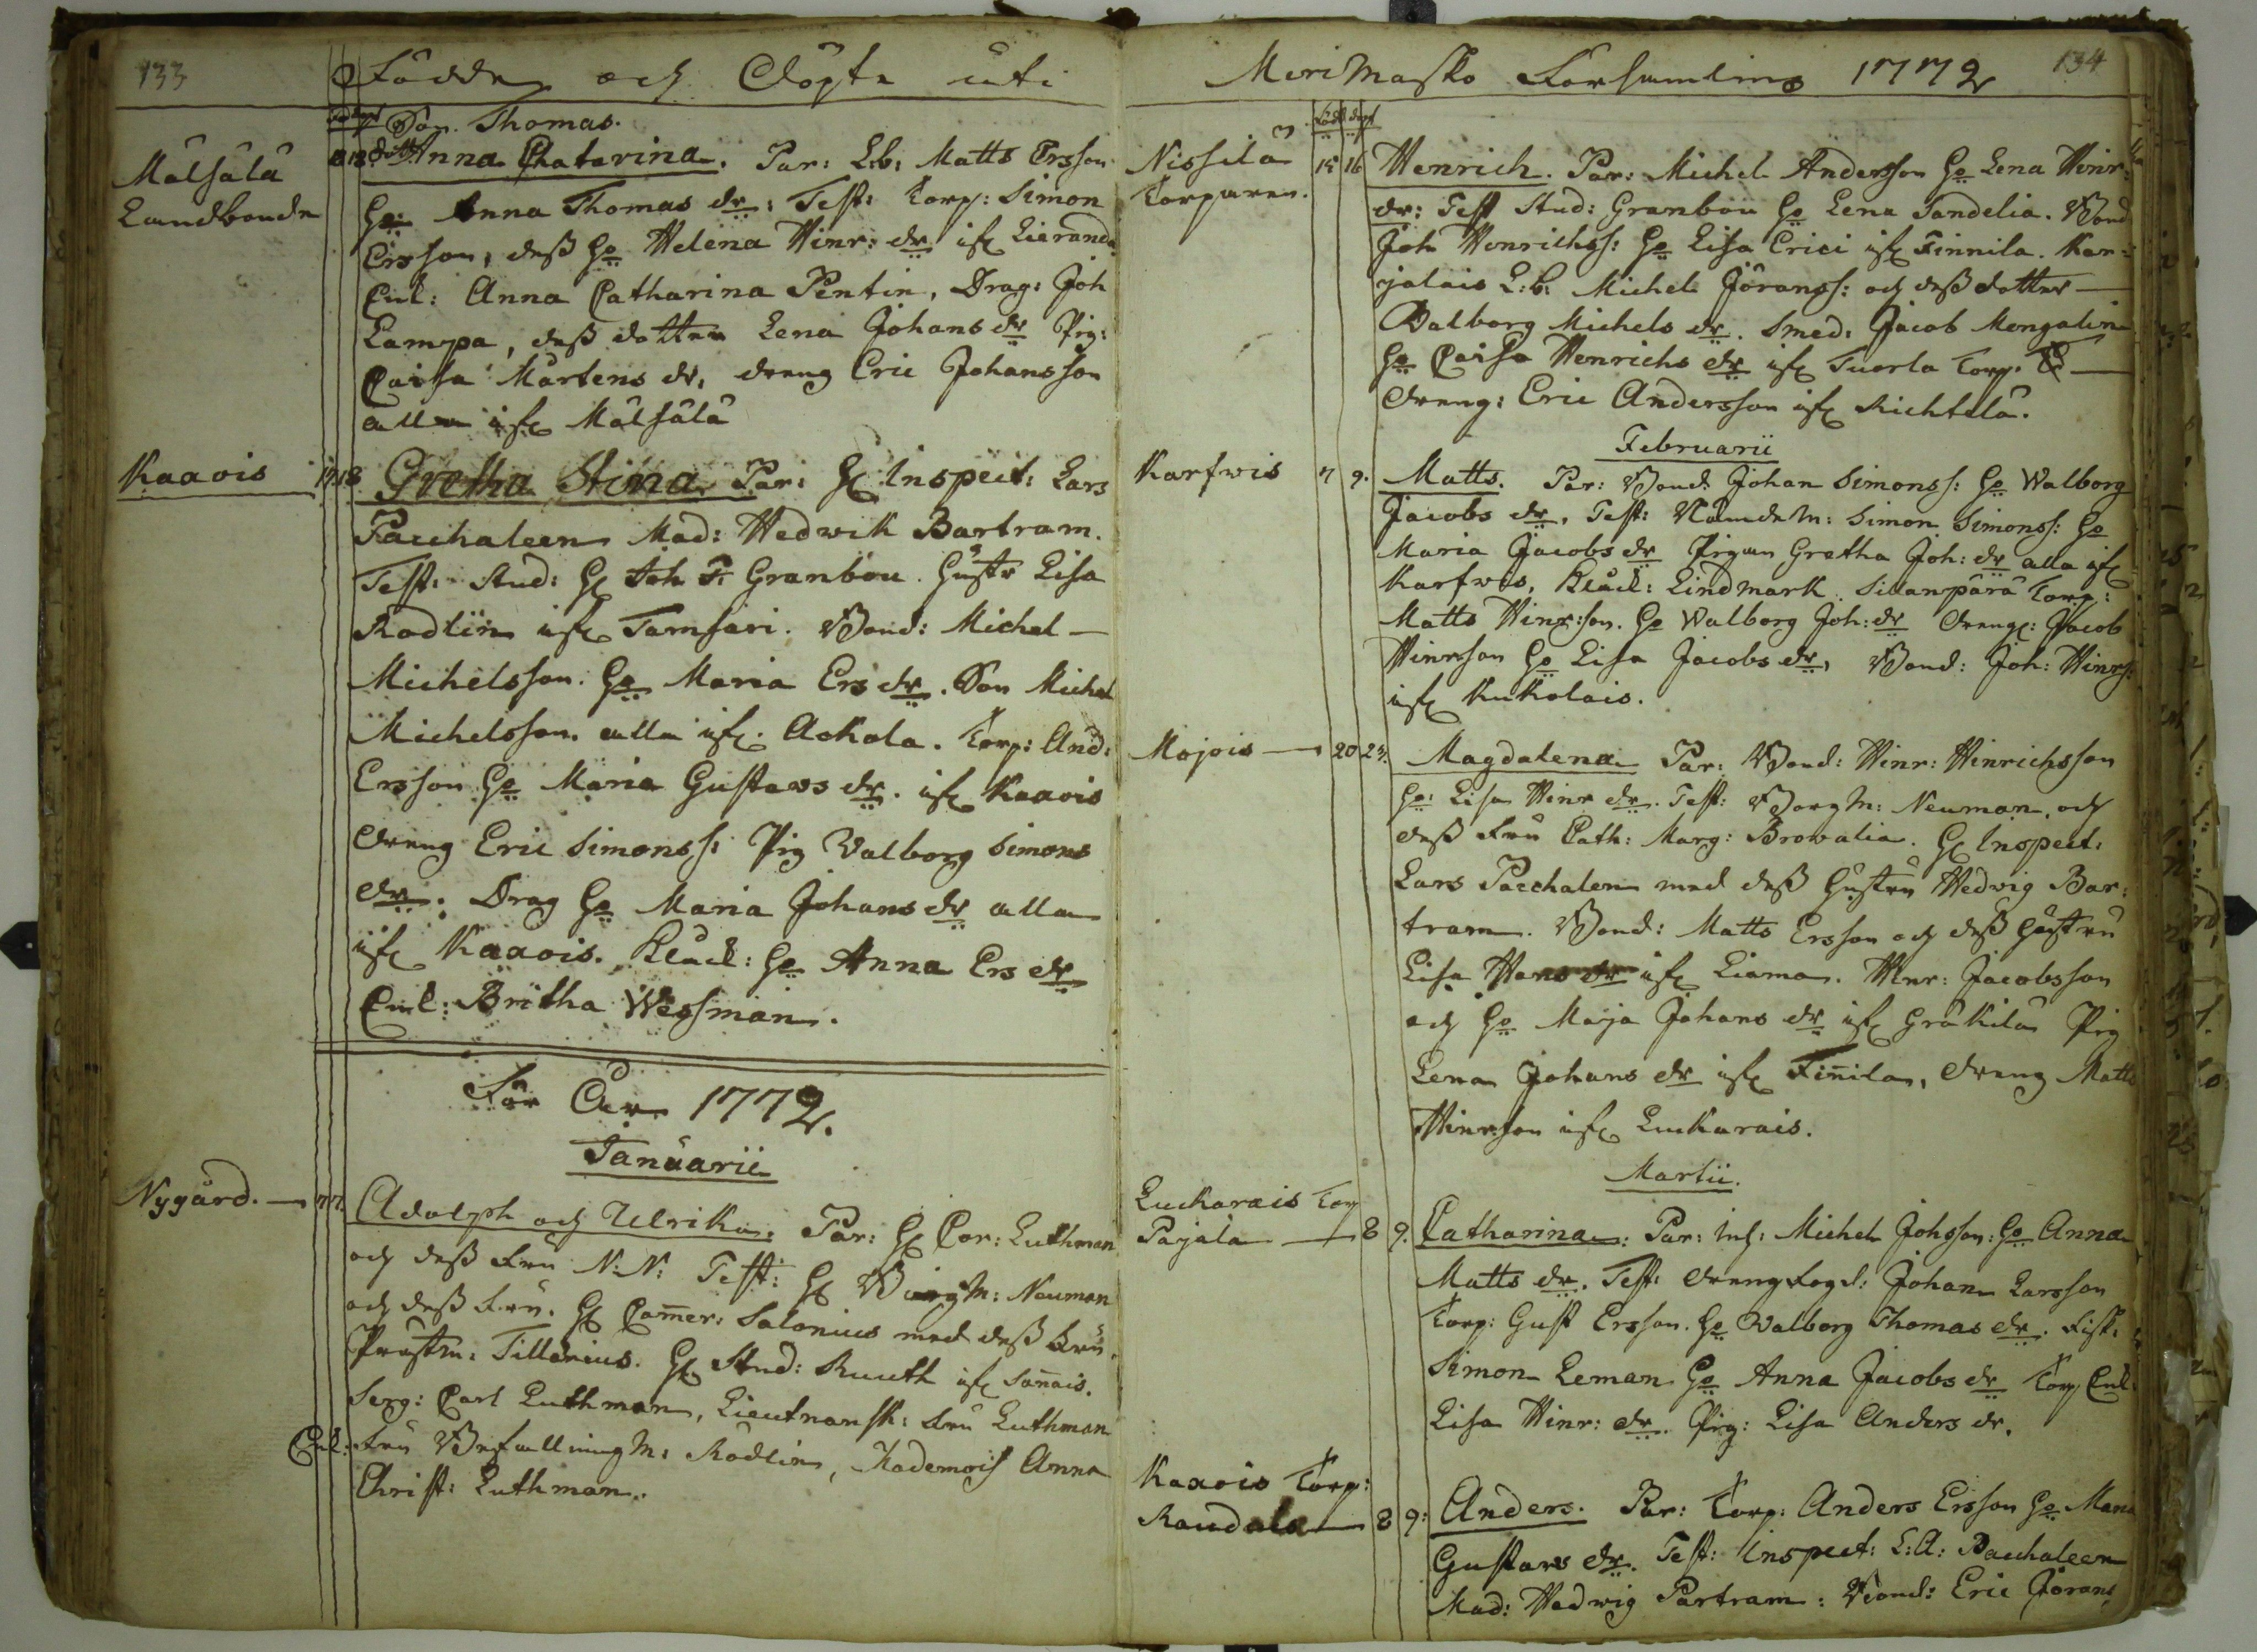 133 Födde och Döpte uti
Född döpt
Son. Thomas.
Målsålä 12 13 dott. Anna Chatarina. Par: L:b: Matts Ersson
Landbonde Ho: Anna Thomas dr: Test: Torp: Simon
Ersson, dess Ho Helena Hinr: dr ifr Lieranda
Enk: Anna Catharina Pentin, Drag: Joh
Lampa, dess dotter Lena Johans dr Pig:
Caisa Mårtens dr, dreng Eric Johansson
alla ifr Målsålä
Kaavis 17 18 Gretha Stina. Par: H Inspect: Lars
Pacchaleen Mad: Hedwik Bartram.
Test: Stud: H Joh F: Granbou. Hustr Lisa
Rodlin ifr Tamsari. Bond: Michel
Michelsson. Ho Maria Ers dr. Son Michel
Michelsson alla ifr. Ackola. Torp: And:
Ersson Ho Maria Gustavs dr. ifr Kaavis
dreng Eric Simonss: Pig Walborg Simons
dr. Drag Ho Maria Johans dr alla
ifr Kaavis. Kläck: Ho Anna Ers dr
Enk: Britha Wessman.
För År 1772.
Januarii
Nygård. 7 7. Adolph och Ulrika. Par: H Cor: Luthman
och dess Fru N:N: Test: H Borgm: Neuman
och dess Fru. H Cammer: Salonius med dess Fru.
Prostin: Tillenius. H Stud: Ruuth ifr Sonnais.
Serg: Carl Luthman, Lieutnantsk: Fru Luthman
Enk: Fru Befallningm: Rodlin, Mademois Anna
Christ: Luthman.
Merimasko Forsamling 1772 134
Född döpt
Nissilä 15 16 Henrich. Par: Michel Andersson Ho Lena Hinr:
Torparen. dr: Test Stud: Granbou Ho Lena Tandelia. Bond
Joh Henrichss: Ho Lisa Erici ifr Finnila. Kar-
jalais L:b: Michel Jöranss: och dess dotter
Walborg Michels dr. Smed: Jacob Mengalin
Ho Caisa Henrichs dr ifr Tuorla Torp.
dreng: Eric Andersson ifr Kichtelä.
Februarii
Karfwis 7 9. Matts. Par: Bond: Johan Simonss: Ho Walborg
Jacobs dr. Test: Nämdem: Simon Simonss: Ho
Maria Jacobs dr Pigan Gretha Joh: dr alla ifr
Karfwis, Kläck: Lindmark. Sillanpärä Torp:
Matts Hinr:son. Ho Walborg Joh:dr dreng: Jacob
Hinrson Ho Lisa Jacobs dr, Bond: Joh: Hinrs:
ifr Kukolais.
Mojois 20 23. Magdalena Par: Bond: Hinr: Hinrichsson
Ho: Lisa Hinr dr. Test: Borgm: Neuman, och
dess Fru Cath: Marg: Browalia. H Inspect:
Lars Pacchalen med dess Hustru Hedvig Bar-
tram. Bond: Matts Ersson och dess Hustru
Lisa Hans dr ifr Liama. Hinr: Jacobsson
och Ho Maja Johans dr ifr Gräkilä Pig
Lena Johans dr ifr Finnila, dreng Matts
Hinrson ifr Luckarais.
Martii.
Luckarais Torp
Pajala 8 9. Catharina. Par: Inh: Michel Johsson: Ho Anna
Matts dr. Test: drengfogd: Johan Larsson
Torp: Gust Ersson. Ho Walborg Thomas dr. Fisk:
Simon Leman Ho Anna Jacobs dr Torp Enk:
Lisa Hinr: dr. Pig: Lisa Anders dr.
Kaavis Torp:
Raudala 8 9: Anders. Par: Torp: Anders Ersson Ho Maria
Gustavs dr. Test: Inspect: L:A: Pacchaleen
Mad: Hedwig Partram: Bond: Eric Jörans